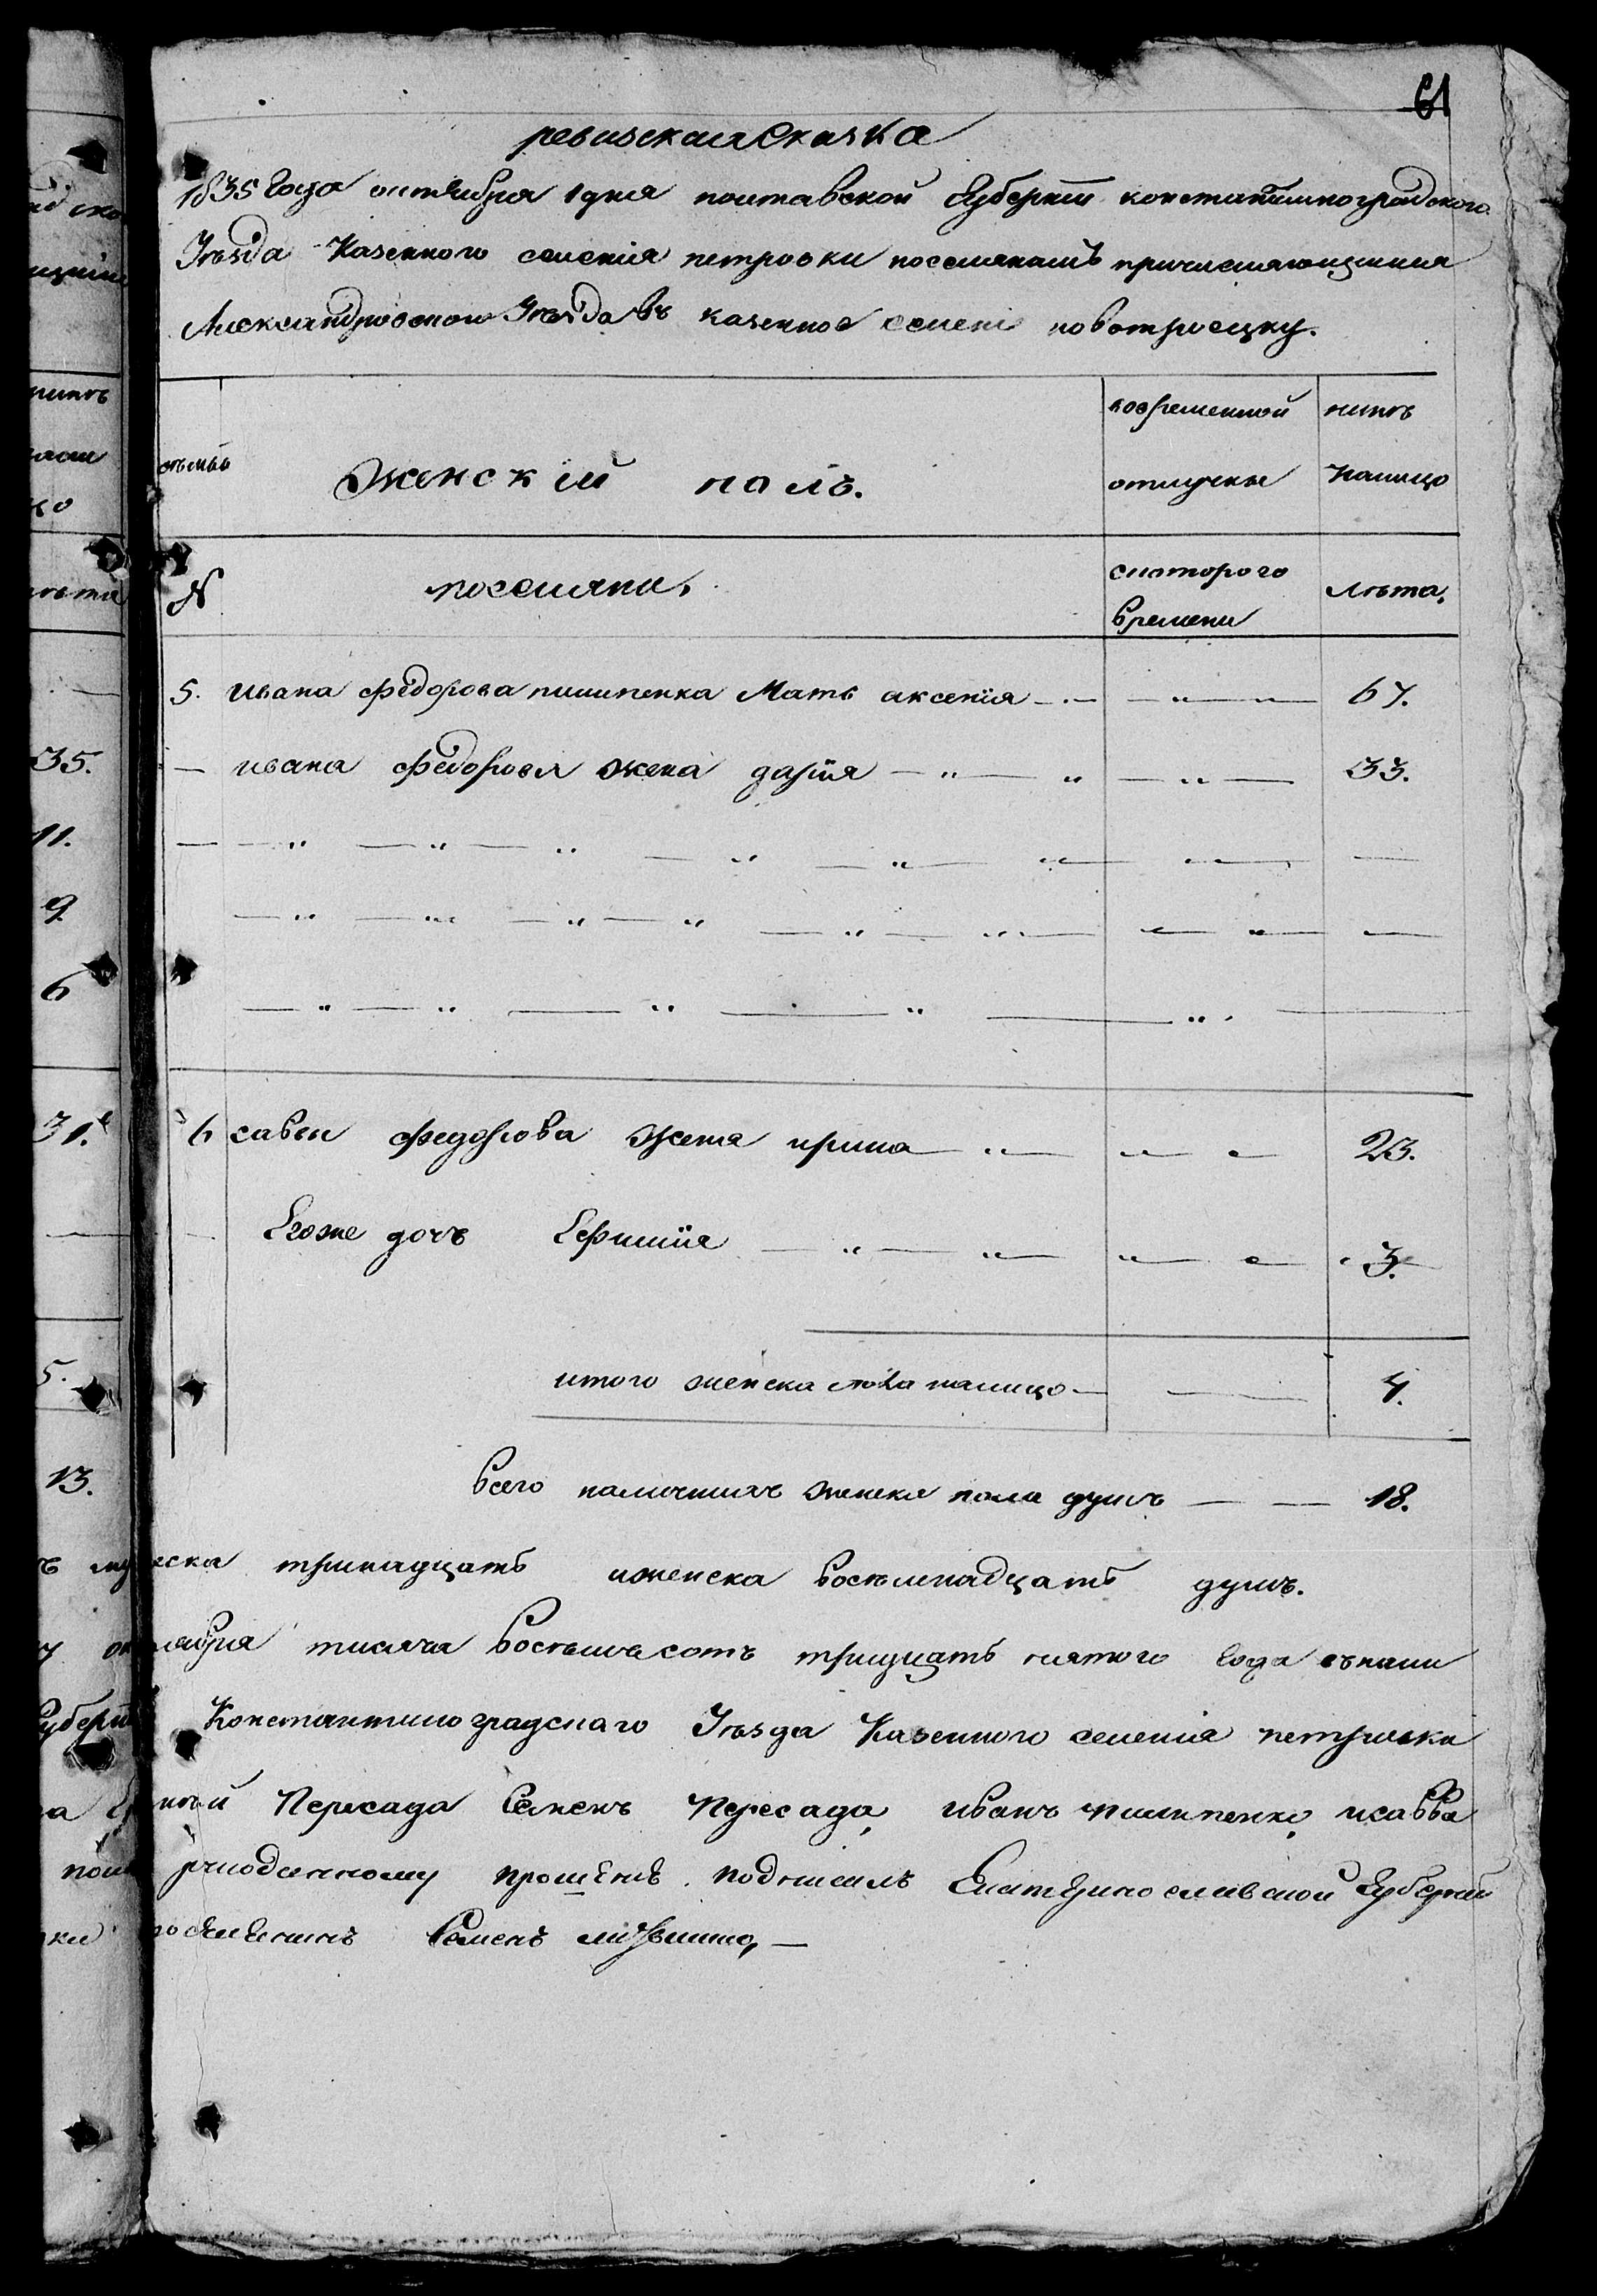 61
ревиская Скаска
1835 Года октября 1 дня полтавской Губернїи константиноградского
Уезда Казенного селенїя петровки поселянамъ причисляющимся
Александровскою Уезда въ казенное селенї новотроецку.
ковременной нинѣ
семьи Женскїй полъ. отлучки налицо
№ поселяни, скоторого лѣта,
времени
5. ивана федорова пилипенка Мать аксенїя 67.
ивана федорова жена дарїя 33.
6 савы федорова жена ирина 23.
Егоже дочъ Ефимїя 3.
итого женска пола налицо 4.
всего наличнихъ женска пола душъ 18.
тринадцать иженска восѣмнадцать душъ.
октября тисяча восѣмъсотъ тридцать пятого года
Константиноградскаго Уезда Казенного селенїя петровки
Пересада Семенъ Пересада, иванъ пилипенко, исавва
прошенїю подписалъ Екатеринославской Губернїи
Семенъ
35.
11.
9.
6
31.
5.
13.